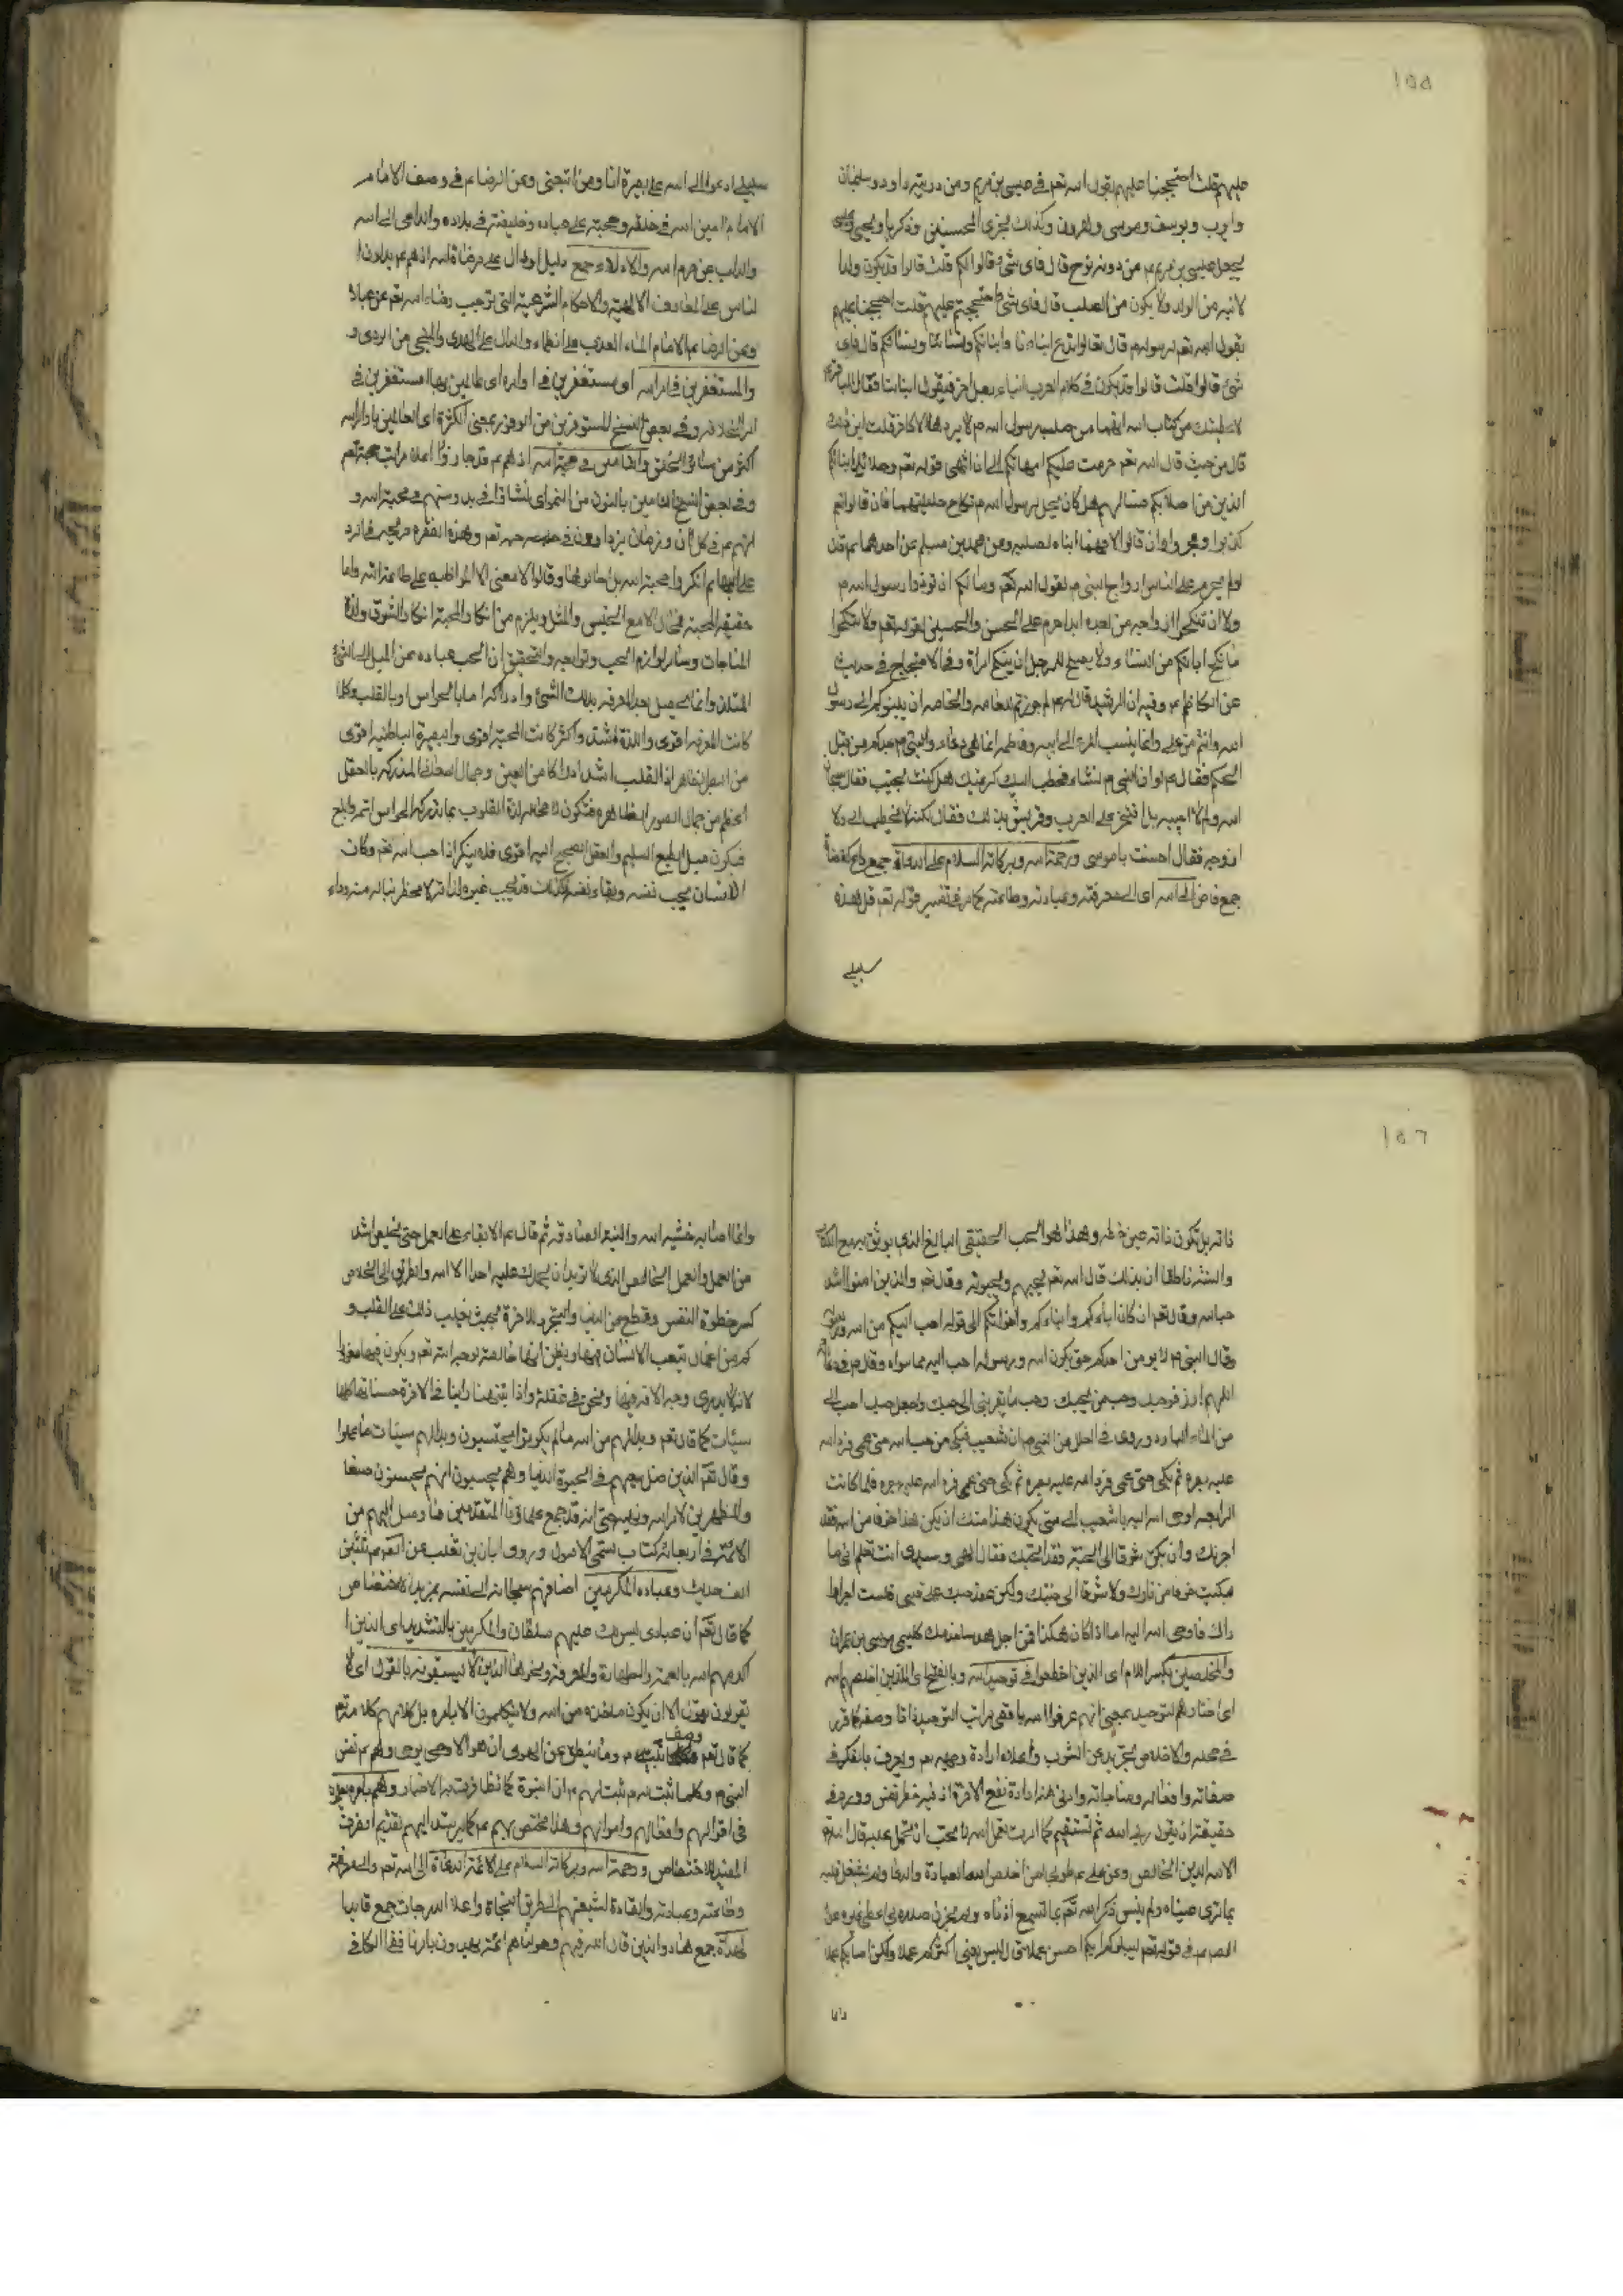 ١٥٥
عليهم قلت احتججنا عليهم بقول الله تعم في عيسى بن مريم ومن ذريته داود وسليمان
وايوب ويوسف وموسى وهرون وكذلك نجزى المحسنين وذكريا ويحيى وعيسى
فجعل عيسى بن مريم من ذرية نوح قال فاى شئ قالوا لكم قلت قالوا قد يكون ولد ا
لابنه من الولد ولا يكون من الصلب قال فاى شئ احتججتم عليهم قلت احتججنا عليهم
بقول الله تعم لرسوله م قال تعالوا ندع ابناءنا وابنائكم ونسائنا ونسائكم قال فاى
شئ قالوا قلت قالوا قد يكون في كلام العرب ابناء رجل اخر فيقول ابنائنا فقال
لاعطينك من كتاب الله انهما من صلب رسول الله م لا يردها الا كافر قلت اين
قال من حيث قال الله تعم حرمت عليكم امهاتكم الى ان انتهى قوله تعم وحلائل ابنائكم
الذين من اصلابكم فسالهم هل كان يحل لرسول الله م نكاح حليلتهما فان قالوا نعم
كذبوا وفجروا وان قالوا لا فهما ابناه لصلبه وعن محمد بن مسلم عن احدهما م قال
لو لم يحرم على الناس ازواج النبي م بقول الله تعم وما لكم ان توذوا رسول الله م
ولا ان تنكحوا ازواجه من بعده ابدا حرم على الحسن والحسين بقوله تعم ولا تنكحوا
ما نكح اباؤكم من النساء ولا يصلح للرجل ان ينكح امراة وفى الاحتجاج في حديث
عن الكاظم م وفيه ان الرشيد قال له لم جوزتم للعامه والخاصه ان ينسبوكم الى رسول
الله وانتم من على وانما ينسب المرء الى ابيه وفاطمه انما هي وعاء والنبى م جدكم من قبل
امكم فقال م لو ان النبى م نشر فخطب اليك كريمتك هل كنت تجيب فقال سبحان
الله ولم لا اجيبه بل افتخر على العرب وقريش بذلك فقال لكنه لا يخطب الى ولا
ازوجه فقال احسنت يا موسى ورحمة الله وبركاته السلام على الدعاة جمع داع كقضاة
جمع قاض الى الله اى الى معرفته وعبادته وطاعته كما مر فى تفسير قوله تعم قل هذه
سبيلى
سبيلى ادعوا الى الله على بصيرة انا ومن اتبعنى وعن الرضاء م في وصف الامام
الامام امين الله في خلقه وحجته على عباده وخليفته في بلاده والداعى الى الله
والذاب عن حرم الله والادلاء جمع دليل اى الدال على مرضاة الله اذ هم م يدلون ا
لناس على المعارف الالهيه والاحكام الشرعية التي توجب رضاء الله تعم عن عباده
وعن الرضا م الامام الماء العذب على الظماء والدال على الهدى والمنجى من الردى و
والمستقرين في امر الله اى مستقرين في اوامره اى عاملين بها او مستقرين في
امر الخلافه وفي بعض النسخ المستوفرين من الوفور بمعنى الكثرة اى العاملين باوامر الله
اكثر من سائر الخلق والتامين في محبة الله اذ هم م قد حازوا اعلا مراتب محبته تعم
وفي بعض النسخ النامين بالنون من النمو اى نشاؤا في بدو سنهم في محبة الله و
انهم م في كل ان و زمان يزدادون في حبه تعم وهذه الفقره صريحه في الرد
على من انكروا محبة الله بل احالوها وقالوا لا معنى لها الا المواظبه على طاعة الله واما
حقيقة المحبة فمحال الا مع الجنس والمثل ويلزم من انكار المحبة انكار الشوق ولذة
المناجات وسائر لوازم الحب وتوابعه والتحقيق ان الحب عباره عن الميل الى الشئ
الملذ وانما يحصل بعد المعرفه بذلك الشئ وادراكه اما بالحواس او بالقلب وكلما
كانت المعرفه اقوى واللذة اشد واكثر كانت المحبة اقوى والبصيرة الباطنيه اقوى
من البصر الظاهر اذ القلب اشد ادراكا من العين وجمال المعانى المدركه بالعقل
اعظم من جمال الصور الظاهره فتكون لا محاله لذة القلوب بما تدركه الحواس اتم وابلغ
فيكون ميل الطبع السليم والعقل الصحيح اليه اقوى فلا ينكر اذا حب الله تعم وكان
الانسان يحب نفسه وبقاء نفسه كذلك قد يحب غيره لذاته لا لحظ يناله منه وراء
١٥٦
ذاته بل تكون ذاته عين حظه وهذا هو الحب الحقيقى البالغ الذى يوثق به مع الكتاب
والسنة ناطقان بذلك قال الله تعم يحبهم ويحبونه وقال تعم والذين امنوا اشد
حبا لله وقال تعم ان كان اباؤكم وابناؤكم واخوانكم الى قوله احب اليكم من الله ورسوله
وقال النبى م لا يومن احدكم حتى يكون الله ورسوله احب اليه مما سواه وقال م في دعائه
اللهم ارزقنى حبك وحب من يحبك وحب ما يقربنى الى حبك واجعل حبك احب الى
من الماء البارد وروى في العلل عن النبى م ان شعيب بكى من حب الله حتى عمى فرد الله
عليه بصره ثم بكى حتى عمى فرد الله عليه بصره ثم بكى حتى عمى فرد الله عليه بصره فلما كانت
الرابعه اوحى الله اليه يا شعيب الى متى يكون هذا منك ان يكن هذا خوفا من النار فقد
اجرتك وان يكن شوقا الى الجنة فقد ابحتك فقال الهى وسيدى انت تعلم انى ما
بكيت خوفا من نارك ولا شوقا الى جنتك ولكن عقد حبك على قلبى فلست اصبر او
اراك فاوحى الله اليه اما اذا كان هكذا فمن اجل هذا ساخدمك كليمى موسى بن عمران
والمخلصين بكسر اللام اى الذين اخلصوا في توحيد الله وبالفتح اى الذين اخلصهم الله
اى اختارهم لتوحيده بمعنى انهم عرفوا الله باقصى مراتب التوحيد ذاتا وصفة كما قرر
في محله والاخلاص تجريد عن الشوب واعلاه ارادة وجهه تعم ويعرف بالتفكر في
صفاته وافعاله ومناجاته وادنى هذا ارادة نفع الاخرة اذ فيه حظ نفس وورد في
حقيقته ان يقول ربى الله ثم تستقيم كما امرت تعمل لله لا تحب ان تحمد عليه قال الله تعم
الا لله الدين الخالص وعن على م طوبى لمن اخلص لله العبادة والدعا ولم يشغل قلبه
بما ترى عيناه ولم ينس ذكر الله تعم بما تسمع اذناه ولم يحزن صدره بما اعطى غيره وعن
الصم م في قوله تعم ليبلوكم ايكم احسن عملا قال ليس يعنى اكثركم عملا ولكن اصابكم عملا
وانما
وانما الاصابه خشية الله والنية الصادقه ثم قال م الابقاء على العمل حتى يخلص اشد
من العمل والعمل الخالص الذى لا تريد ان يحمدك عليه احد الا الله والطريق الى الخلاص
كسر حظوظ النفس وقطع عن الدنيا والتجرد للاخرة بحيث يغلب ذلك على القلب و
كم من اعمال يتعب الانسان فيها ويظن انها خالصة لوجه الله تعم ويكون فيها مغرورا
لانه لا يدرى وجه الافه فيها ونحن في غفلة واذا انتبهنا راينا في الاخرة حسناتها كلها
سيئات كما قال تعم وبدا لهم من الله ما لم يكونوا يحتسبون وبدا لهم سيئات ما عملوا
وقال تعم الذين ضل سعيهم في الحيوة الدنيا وهم يحسبون انهم يحسنون صنعا
والمظهرين لامر الله ونهيه حتى انه قد جمع علماؤنا المتقدمين ما وصل اليهم من
الائمة في اربعمائة كتاب تسمى الاصول وروى ابان بن تغلب عن الصم م ثلثين
الف حديث وعباده المكرمين اضافهم سبحانه الى نفسه لمزيد الاختصاص
كما قال تعم ان عبادى ليس لك عليهم سلطان والمكرمين بالتشديد اى الذين ا
كرمهم الله بالعصمة والطهارة والمعرفة ونحوها الذين لا يسبقونه بالقول اى لا
يقولون بقول الا ان يكون ماخذه من الله ولا يتكلمون الا بامره بل كلامهم كلامه تعم
وصف
كما قال تعم نبيه م وما ينطق عن الهوى ان هو الا وحى يوحى وهم م نفس
النبى م وكلما ثبت له م ثبت لهم م الا النبوة كما تظافرت به الاخبار وهم بامره يعملون
في اقوالهم وافعالهم واحوالهم وهذا مختص بهم م كما يرشد اليهم تقديم الظرف
المفيد للاختصاص ورحمة الله وبركاته السلام على الائمة الدعاة الى الله تعم والى معرفته
وطاعته وعبادته والقادة لشيعتهم الى طريق النجاة واعلا الدرجات جمع قايد
الهداة جمع هاد والذين قال الله فيهم وجعلناهم ائمة يهدون بامرنا ففى الكافى